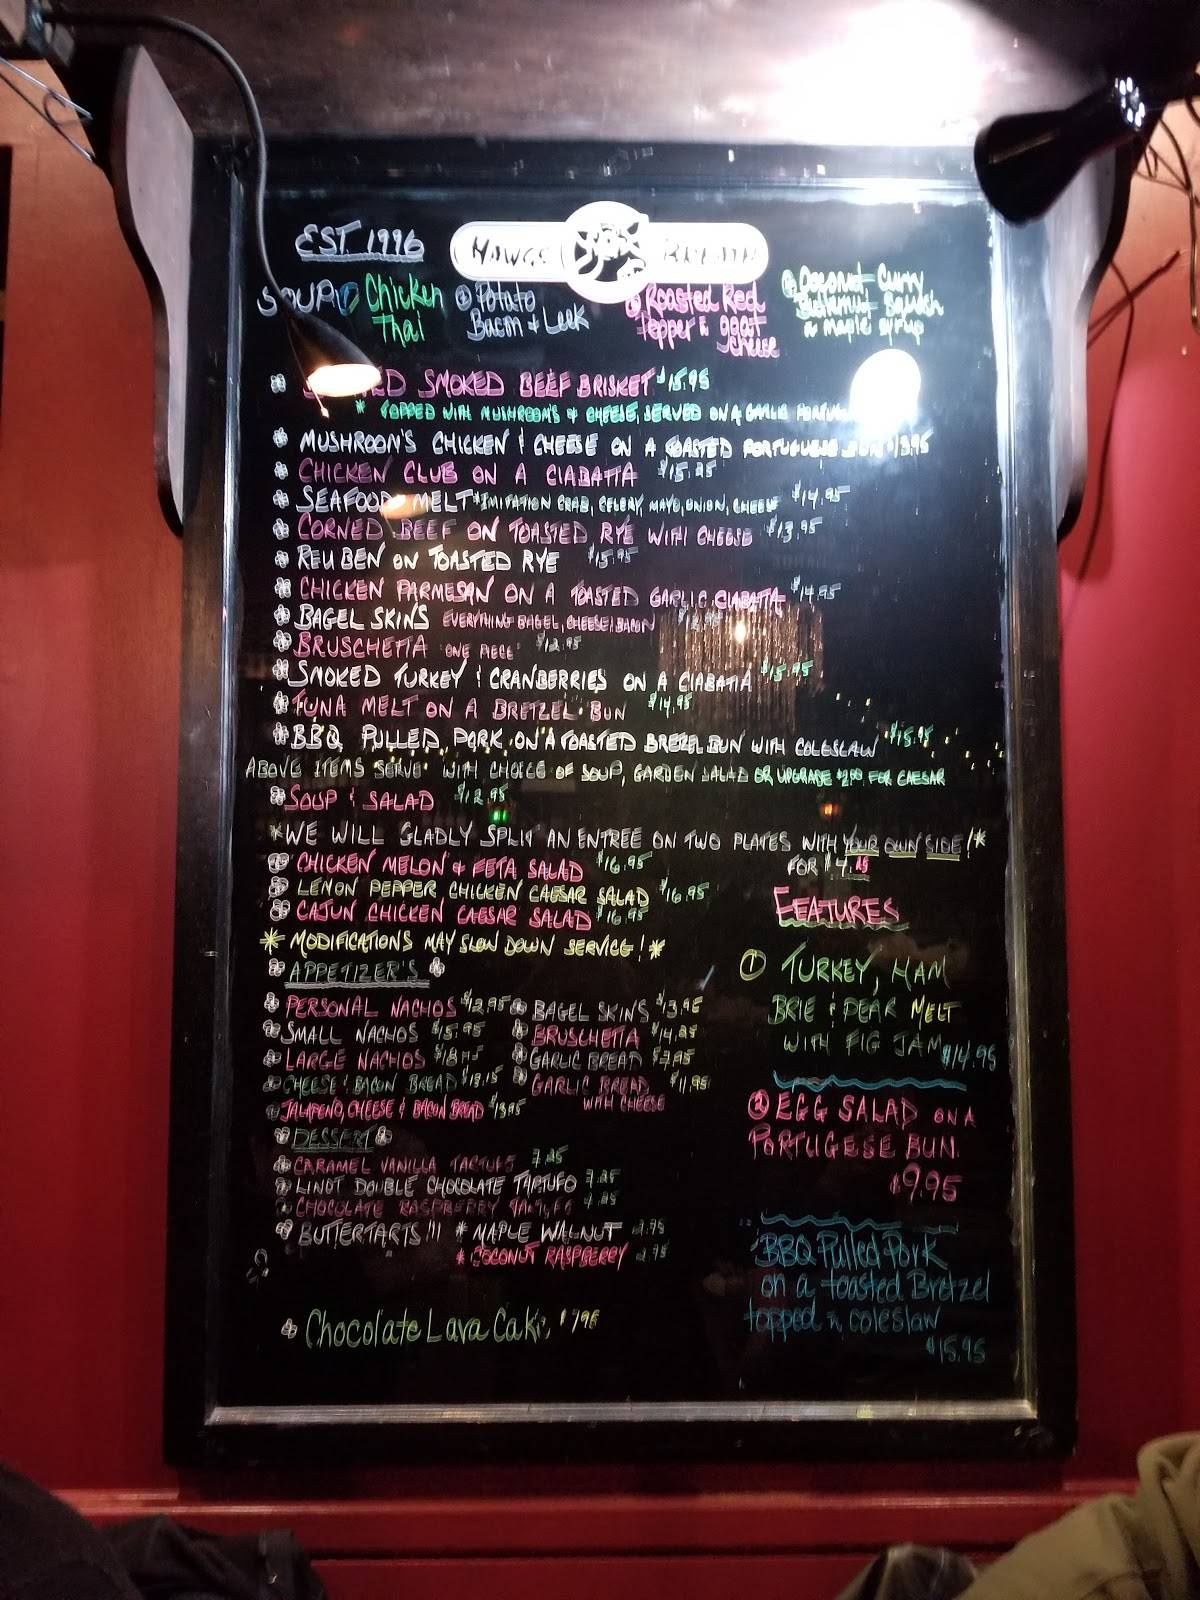 EST 1996
HAWGS BREATH
SOUP ① Chicken Thai
② Potato Bacon & Leek
③ Roasted Red Pepper & goat cheese
④ Coconut Curry Butternut Squash & maple syrup
SMOKED BEEF BRISKET $15.95
* TOPPED WITH MUSHROOM'S & CHEESE, SERVED ON A GARLIC
MUSHROOM'S CHICKEN & CHEESE ON A TOASTED PORTUGUESE BUN $13.95
CHICKEN CLUB ON A CIABATTA
SEAFOOD MELT *IMITATION CRAB, CELERY, MAYO, ONION, CHEESE $14.95
CORNED BEEF ON TOASTED RYE WITH CHEESE $13.95
REUBEN ON TOASTED RYE $15.95
CHICKEN PARMESAN ON A TOASTED GARLIC CIABATTA $14.95
BAGEL SKINS EVERYTHING BAGEL, CHEESE, BACON
BRUSCHETTA ONE PIECE $12.95
SMOKED TURKEY & CRANBERRIES ON A CIABATTA $15.95
TUNA MELT ON A BRETZEL BUN $14.95
BBQ PULLED PORK ON A TOASTED BREZEL BUN WITH COLESLAW $15.95
ABOVE ITEMS SERVE WITH CHOICE OF SOUP, GARDEN SALAD OR UPGRADE $2.00 FOR CAESAR
SOUP & SALAD $12.95
*WE WILL GLADLY SPLIT AN ENTREE ON TWO PLATES WITH YOUR OWN SIDE!*
FOR $4.
CHICKEN MELON & FETA SALAD $16.95
LEMON PEPPER CHICKEN CAESAR SALAD $16.95
CAJUN CHICKEN CAESAR SALAD $16.95
* MODIFICATIONS MAY SLOW DOWN SERVICE! *
APPETIZER'S
PERSONAL NACHOS $12.95
SMALL NACHOS $15.95
LARGE NACHOS
CHEESE & BACON BREAD
JALAPENO, CHEESE & BACON BREAD $13.95
BAGEL SKINS $13.95
BRUSCHETTA
GARLIC BREAD
GARLIC BREAD $11.95
WITH CHEESE
DESSERT
CARAMEL VANILLA TARTUFO
LINDT DOUBLE CHOCOLATE TARTUFO
CHOCOLATE RASPBERRY TARTUFO
BUTTERTARTS!!! * MAPLE WALNUT
* COCONUT RASPBERRY
Chocolate Lava Cake, $7.95
FEATURES
① TURKEY, HAM
BRIE & PEAR MELT
WITH FIG JAM $14.95
② EGG SALAD ON A
PORTUGESE BUN
$9.95
BBQ Pulled Pork
on a toasted Bretzel
topped coleslaw
$15.95